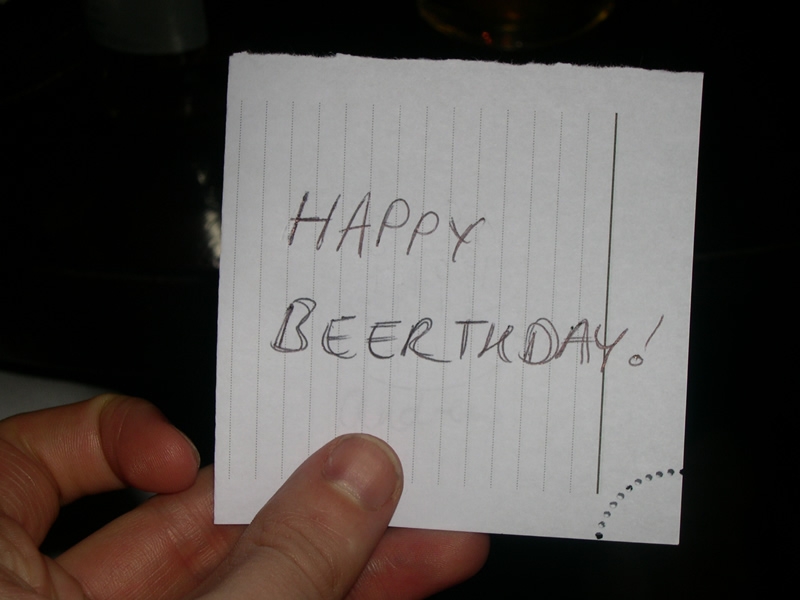 HAPPY
BEERTHDAY!